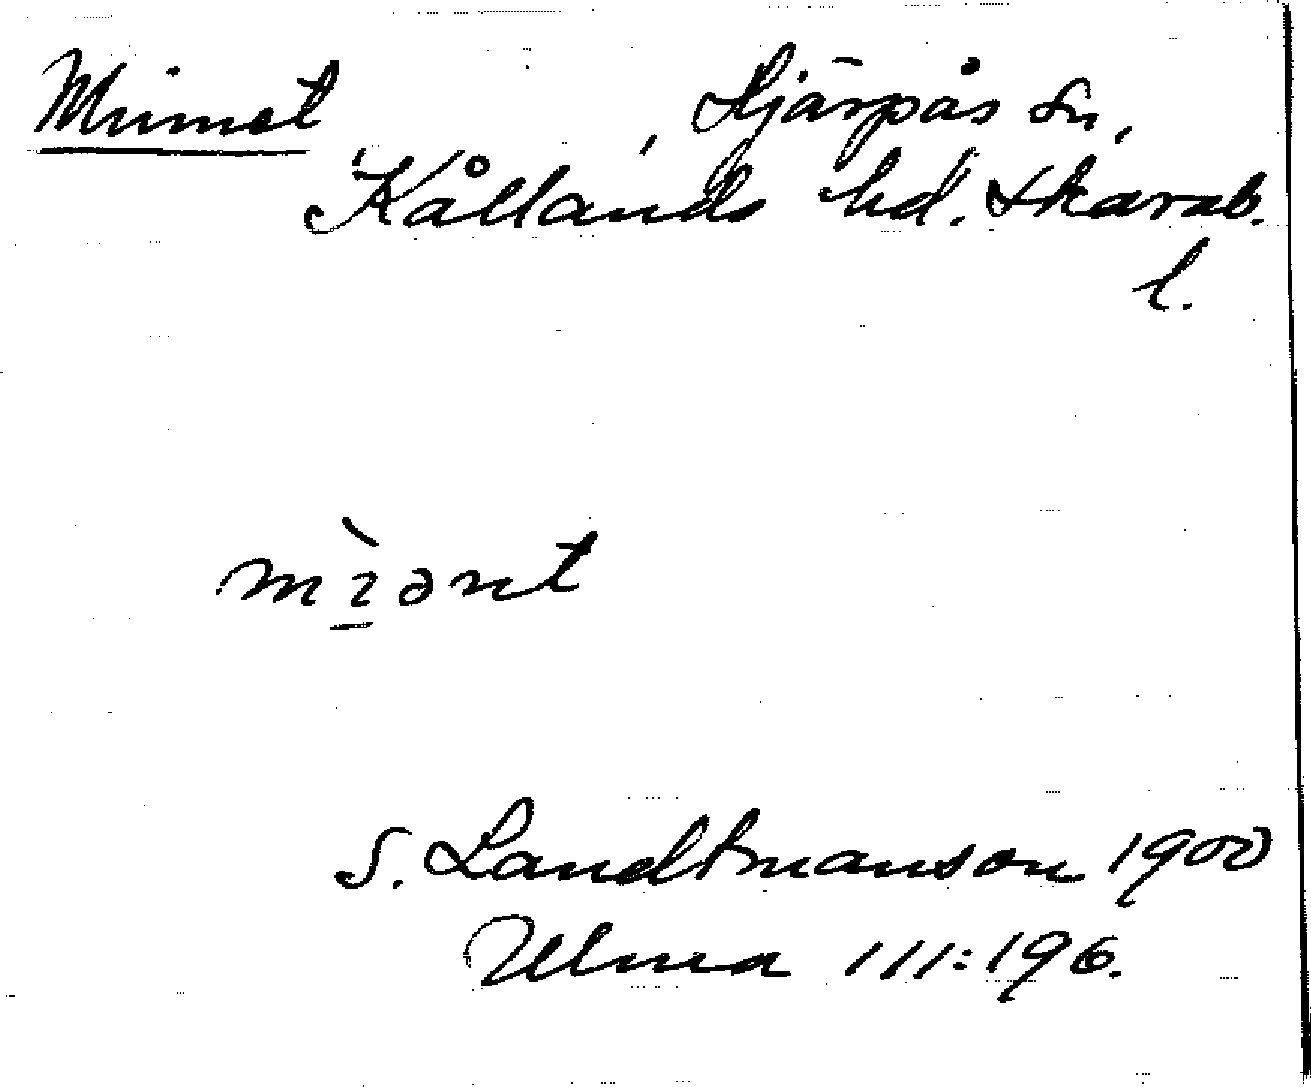 Mirmet, Hjärpås sn,
Kållands hd. Skarab.
l.
S. Landtmanson 1900
Ulma 111:196.